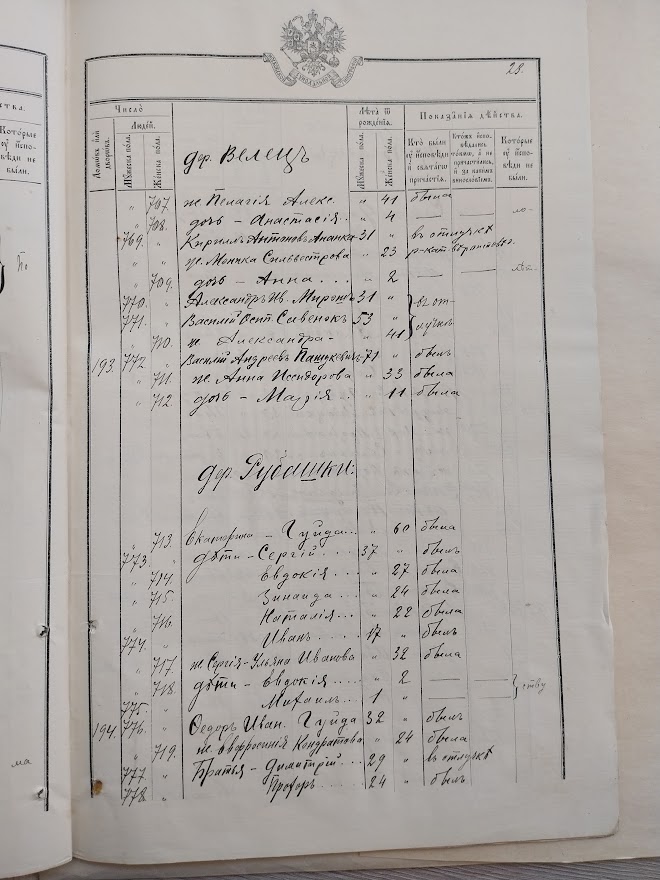 28.
Число
Лѣта ѿ рожденїя.
Показанїя дѣйства.
Домовъ или дворовъ.
Людей.
Мужеска пола.
Женска пола.
Мужеска пола.
Женска пола.
Кто были у исповѣди и святагѡ причастїя.
Ктожъ исповѣдались токмо, а не причастились, и за какимъ винословїемъ.
Которые у исповѣди не были.
дер. Велецъ
" 707. ж. Пелагія Алекс. " 41 была
" 708. дочь – Анастасія.. " 4 — — ло-
769. " Кириллъ Антоновъ 31 " въ отлучкѣ
" ж. Моника Сильвестрова " 23 р-кат.
" 709. дочь – Анна . . . " 2 — —
770. " Александръ Ив. 31 " въ от-
771. " Василій Осип. Савенокъ 53 " лучкѣ
" 710. ж. Александра- " 41
193. 772 " Василій Андреевъ Пашкевичъ 71 " былъ
" 711. ж. Анна Исидорова " 33 была
" 712. дочь – Марія . . " 11 была
дер. Рубашки:
" 713. Екатерина – Гуйда... " 60 была
773. " дѣти – Сергій.... 37 " былъ
" 714. Евдокія . . . " 27 была
" 715. Зинаида... " 24 была
" 716. Наталія... " 22 была
774. " Иванъ..... 17 " былъ
" 717. ж. Сергія – Ульяна Иванова " 32 была
" 718. дѣти – Евдокія.... " 2 — —
775. " Михаилъ.... 1 " — — ству
194. 776. " Ѳедоръ Иван. Гуйда 32 " былъ
" 719. ж. Евфросинія Кондратова " 24 была
777 " Братья – Димитрій... 29 " въ отлучкѣ
778. " Прохоръ...... 24 " былъ